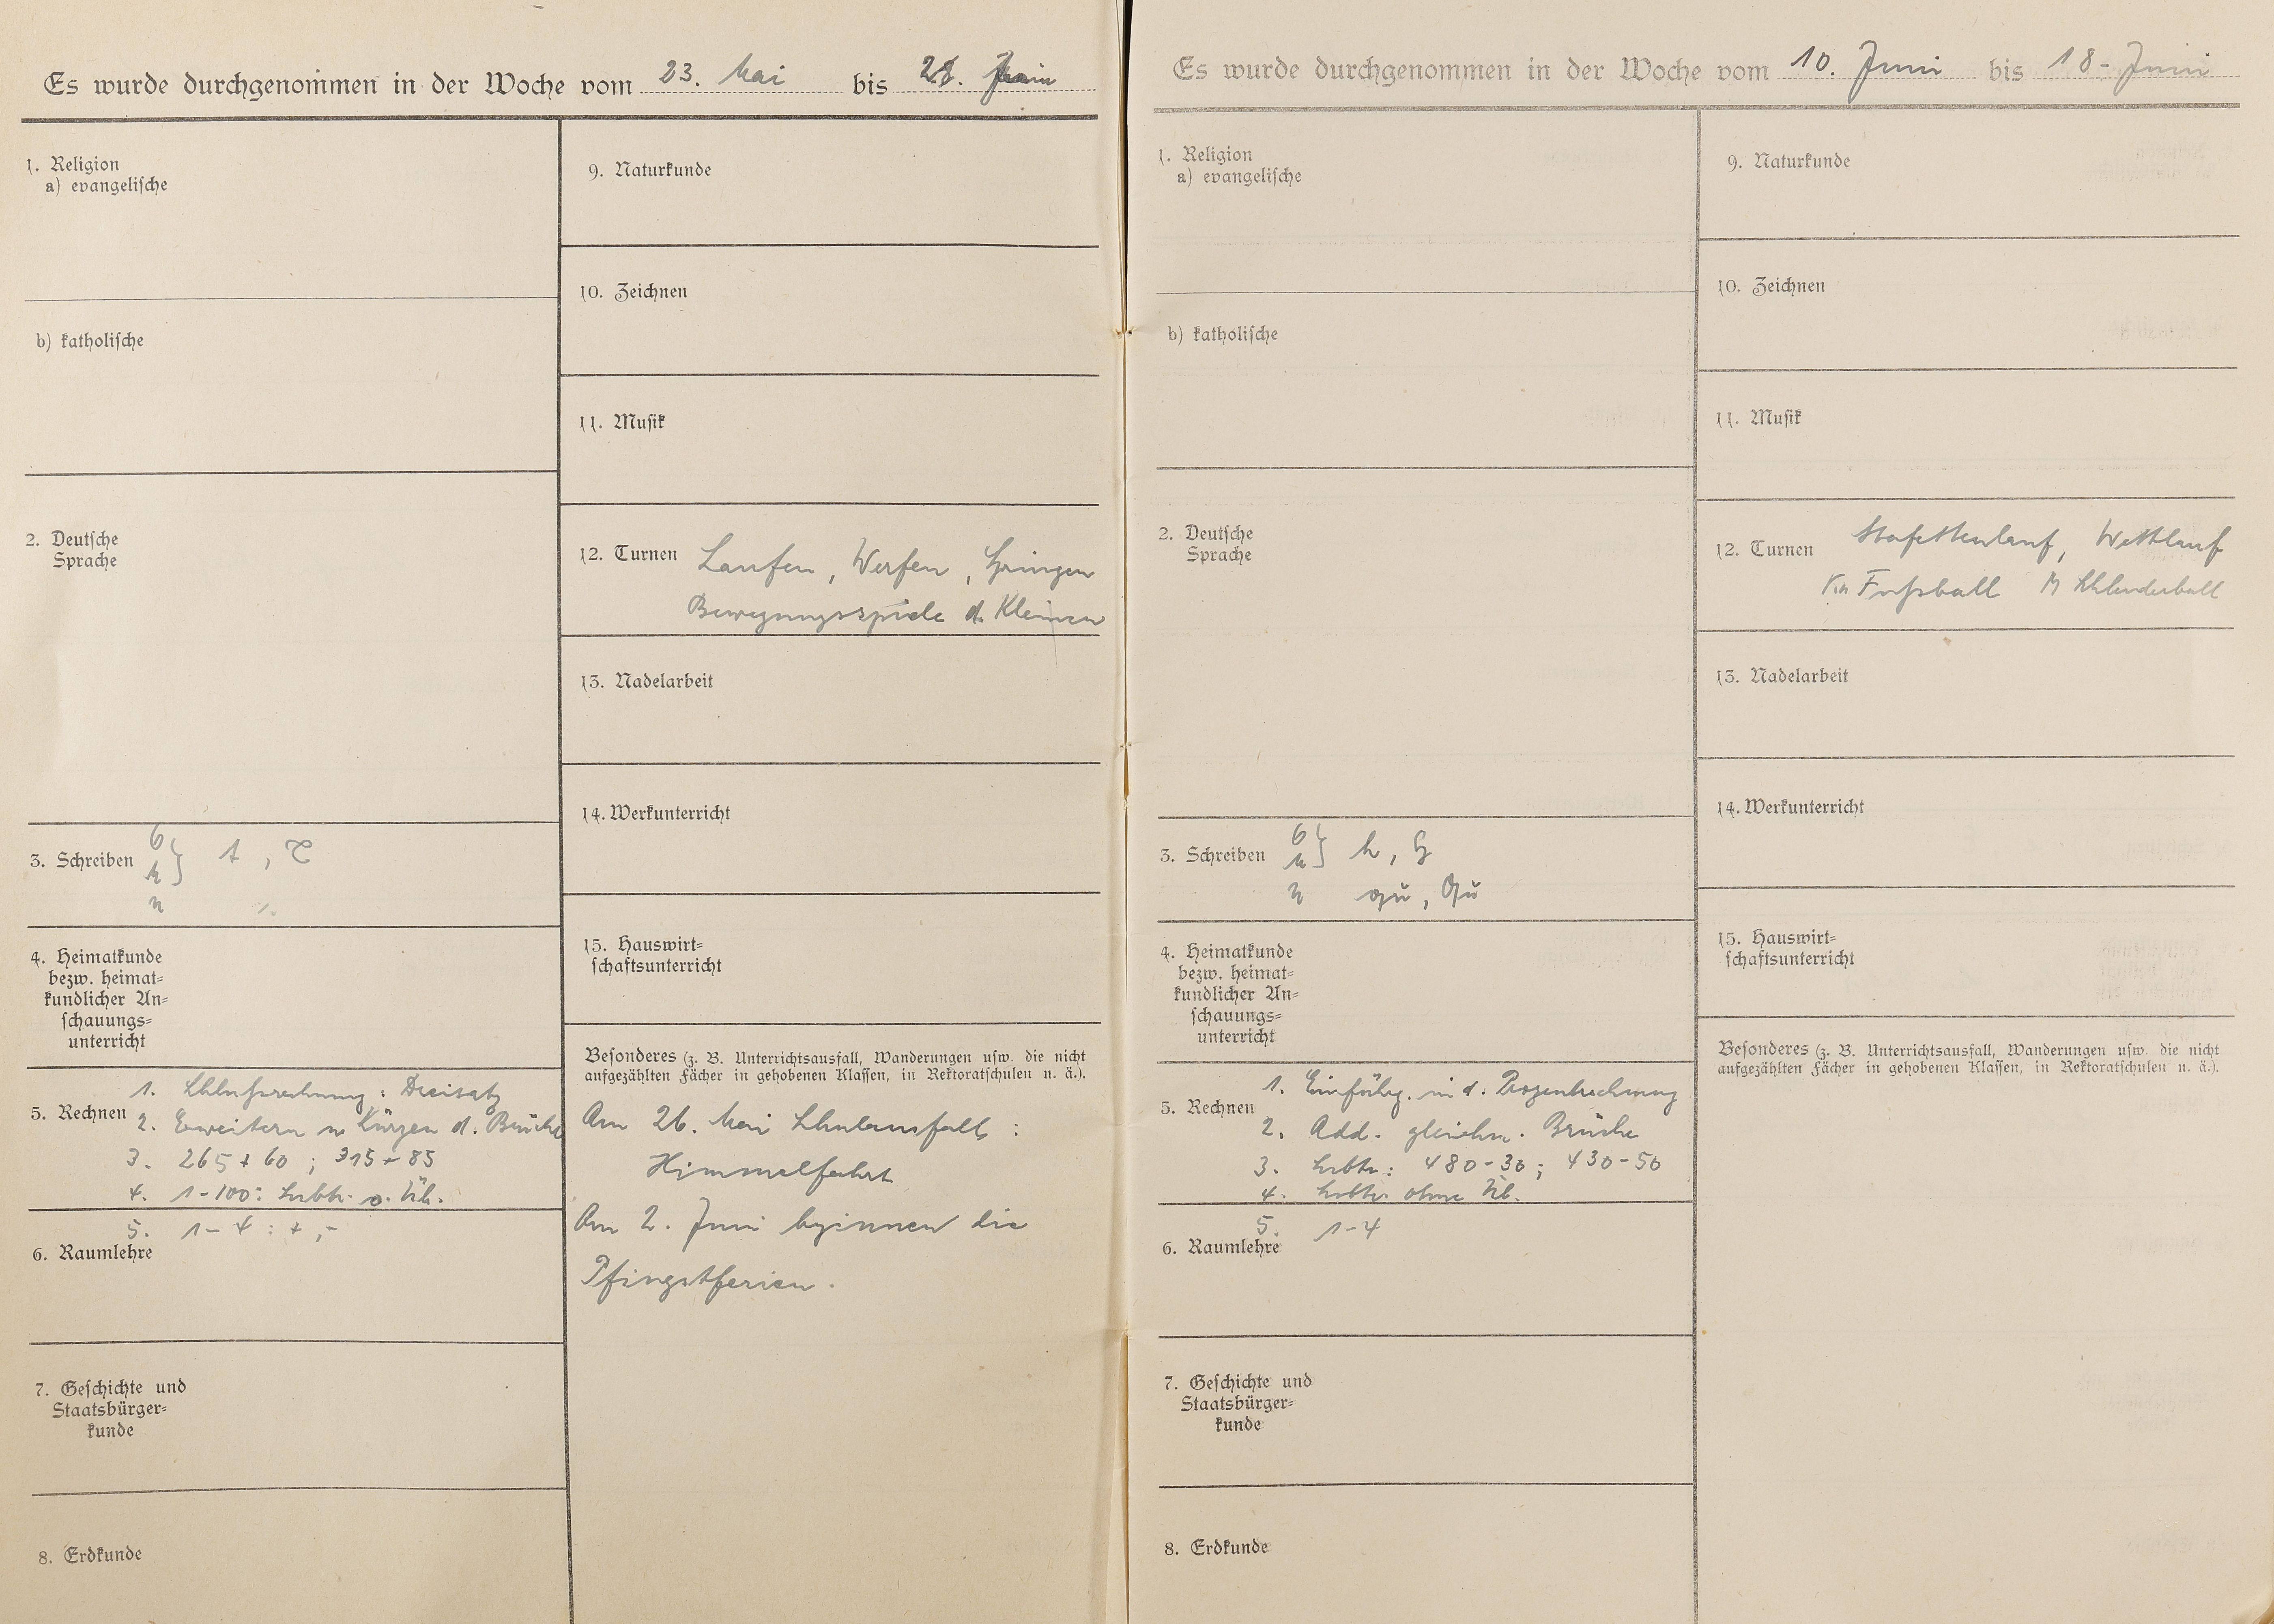 Es wurde durchgenommen in der Woche vom 23. Mai bis 28.
1. Religion
a) evangelische
b) katholische
2. Deutsche
Sprache
3. Schreiben
t, T
4. Heimatkunde
bezw. heimat=
kundlicher An=
schauungs=
unterricht
1. Schlußrechnung: Dreisatz
5. Rechnen
2. Erweitern u. Kürzen d. Brüche
3. 265 + 60 ; 315 + 85
4. 1-100: Subtr. o. Üb.
5. 1-4 : +, -
6. Raumlehre
7. Geschichte und
Staatsbürger=
kunde
8. Erdkunde
9. Naturkunde
10. Zeichnen
11. Musik
12. Turnen Laufen, Werfen, Springen
Bewegungsspiele d. Kleinen
13. Nadelarbeit
14. Werkunterricht
15. Hauswirt=
schaftsunterricht
Besonderes (z. B. Unterrichtsausfall, Wanderungen usw. die nicht
aufgezählten Fächer in gehobenen Klassen, in Rektoratschulen u. ä.).
Am 26. Mai Schulausfall :
Himmelfahrt
Am 2. Juni beginnen die
Pfingstferien.
Es wurde durchgenommen in der Woche vom 10. Juni bis 18. Juni
1. Religion
a) evangelische
b) katholische
2. Deutsche
Sprache
3. Schreiben
h, H
qu, Qu
4. Heimatkunde
bezw. heimat=
kundlicher An=
schauungs=
unterricht
1. Einführg. in d. Prozentrechnung
5. Rechnen
2. Add. gleichn. Brüche
3. Subtr.: 480-30; 430-50
4. Subtr. ohne Üb.
5. 1-4
6. Raumlehre
7. Geschichte und
Staatsbürger=
kunde
8. Erdkunde
9. Naturkunde
10. Zeichnen
11. Musik
12. Turnen Stafettenlauf, Wettlauf
Kn Fußball M Schleuderball
13. Nadelarbeit
14. Werkunterricht
15. Hauswirt=
schaftsunterricht
Besonderes (z. B. Unterrichtsausfall, Wanderungen usw. die nicht
aufgezählten Fächer in gehobenen Klassen, in Rektoratschulen u. ä.).